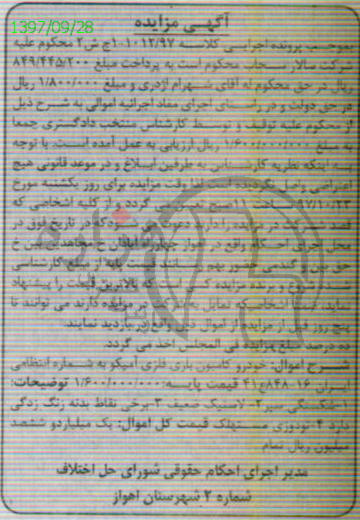 1397/09/28
آگهی مزایده
بموجب پرونده اجرایی کلاسه ۱۰۱۰۱۲/۹۷ج ش۲ محکوم علیه
شرکت سالار سحاب محکوم است به پرداخت مبلغ ۸۴۹/۴۴۵/۲۰۰
ریال در حق محکوم له آقای شهرام اژدری و مبلغ ۱/۸۰۰/۰۰۰ ریال
در حق دولت و در راستای اجرای مفاد اجرائیه اموالی به شرح ذیل
از محکوم علیه توقیف و توسط کارشناس منتخب دادگستری جمعا
به مبلغ ۱/۶۰۰/۰۰۰/۰۰۰ ریال ارزیابی به عمل آمده است. با توجه
به اینکه نظریه کارشناس به طرفین ابلاغ و در موعد قانونی هیچ
اعتراضی واصل نگردیده است لذا وقت مزایده برای روز یکشنبه مورخ
۹۷/۱۰/۲۳ ساعت ۱۱ صبح تعیین می گردد و از کلیه اشخاصی که
قصد شرکت در مزایده را دارند دعوت می شود که در تاریخ فوق در
محل اجرای احکام واقع در اهواز چهارراه آبادان خ مجاهدین بین خ
حق بین و گندمی حضور بهم رسانند. قیمت پایه از مبلغ کارشناسی
شده شروع و برنده مزایده کسی است که بالاترین قیمت را پیشنهاد
نماید. ضمنا اشخاصی که تمایل به شرکت در مزایده دارند می توانند تا
پنج روز قبل از مزایده از اموال دیدن واقع در بازدید نمایند.
ده درصد مبلغ مزایده فی المجلس اخذ می گردد.
شرح اموال: خودرو کامیون باری فلزی آمیکو به شماره انتظامی
ایران ۱۶-۸۴۸ع۴۱ قیمت پایه: ۱/۶۰۰/۰۰۰/۰۰۰ توضیحات:
۱-شکستگی سپر ۲- لاستیک ضعیف ۳-برخی نقاط بدنه رنگ زدگی
دارد ۴-تودوزی مستهلک قیمت کل اموال: یک میلیارد و ششصد
میلیون ریال تمام
مدیر اجرای احکام حقوقی شورای حل اختلاف
شماره ۲ شهرستان اهواز